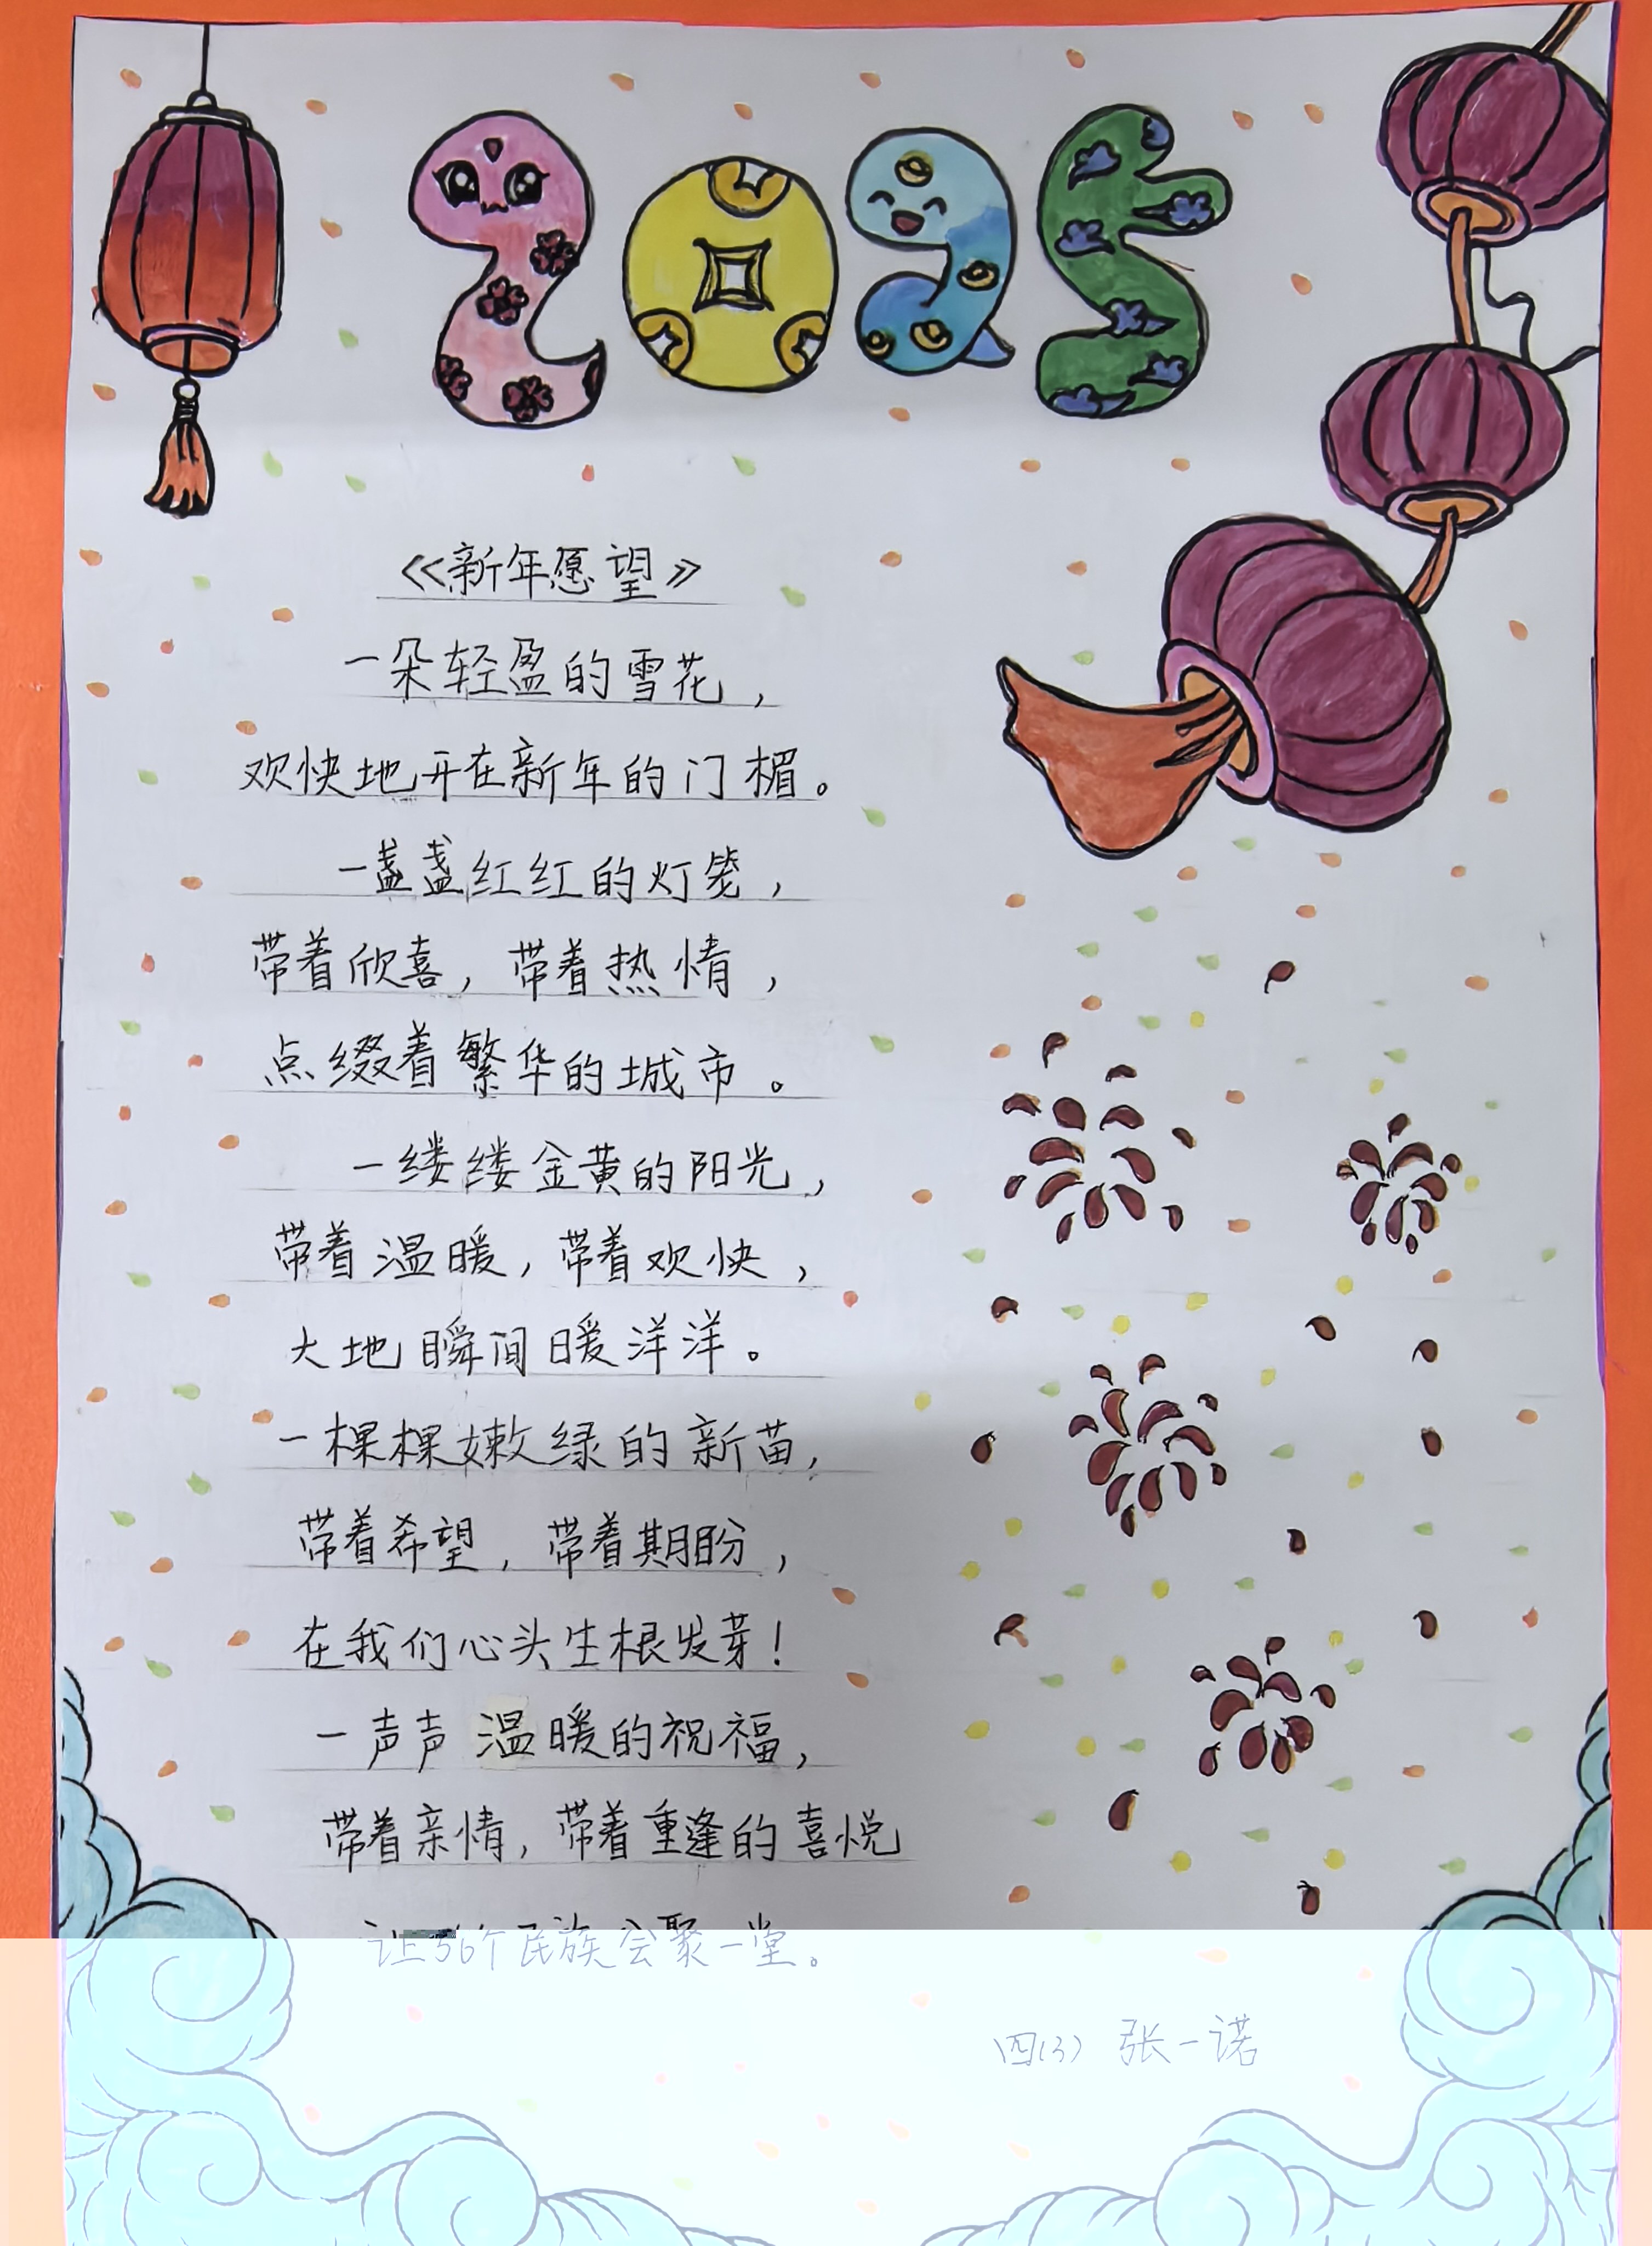 2025
《新年愿望》
一朵轻盈的雪花，
欢快地开在新年的门楣。
一盏盏红红的灯笼，
带着欣喜，带着热情，
点缀着繁华的城市。
一缕缕金黄的阳光，
带着温暖，带着欢快，
大地瞬间暖洋洋。
一棵棵嫩绿的新苗，
带着希望，带着期盼，
在我们心头生根发芽！
一声声温暖的祝福，
带着亲情，带着重逢的喜悦
让56个民族会聚一堂。
四(3) 张一诺